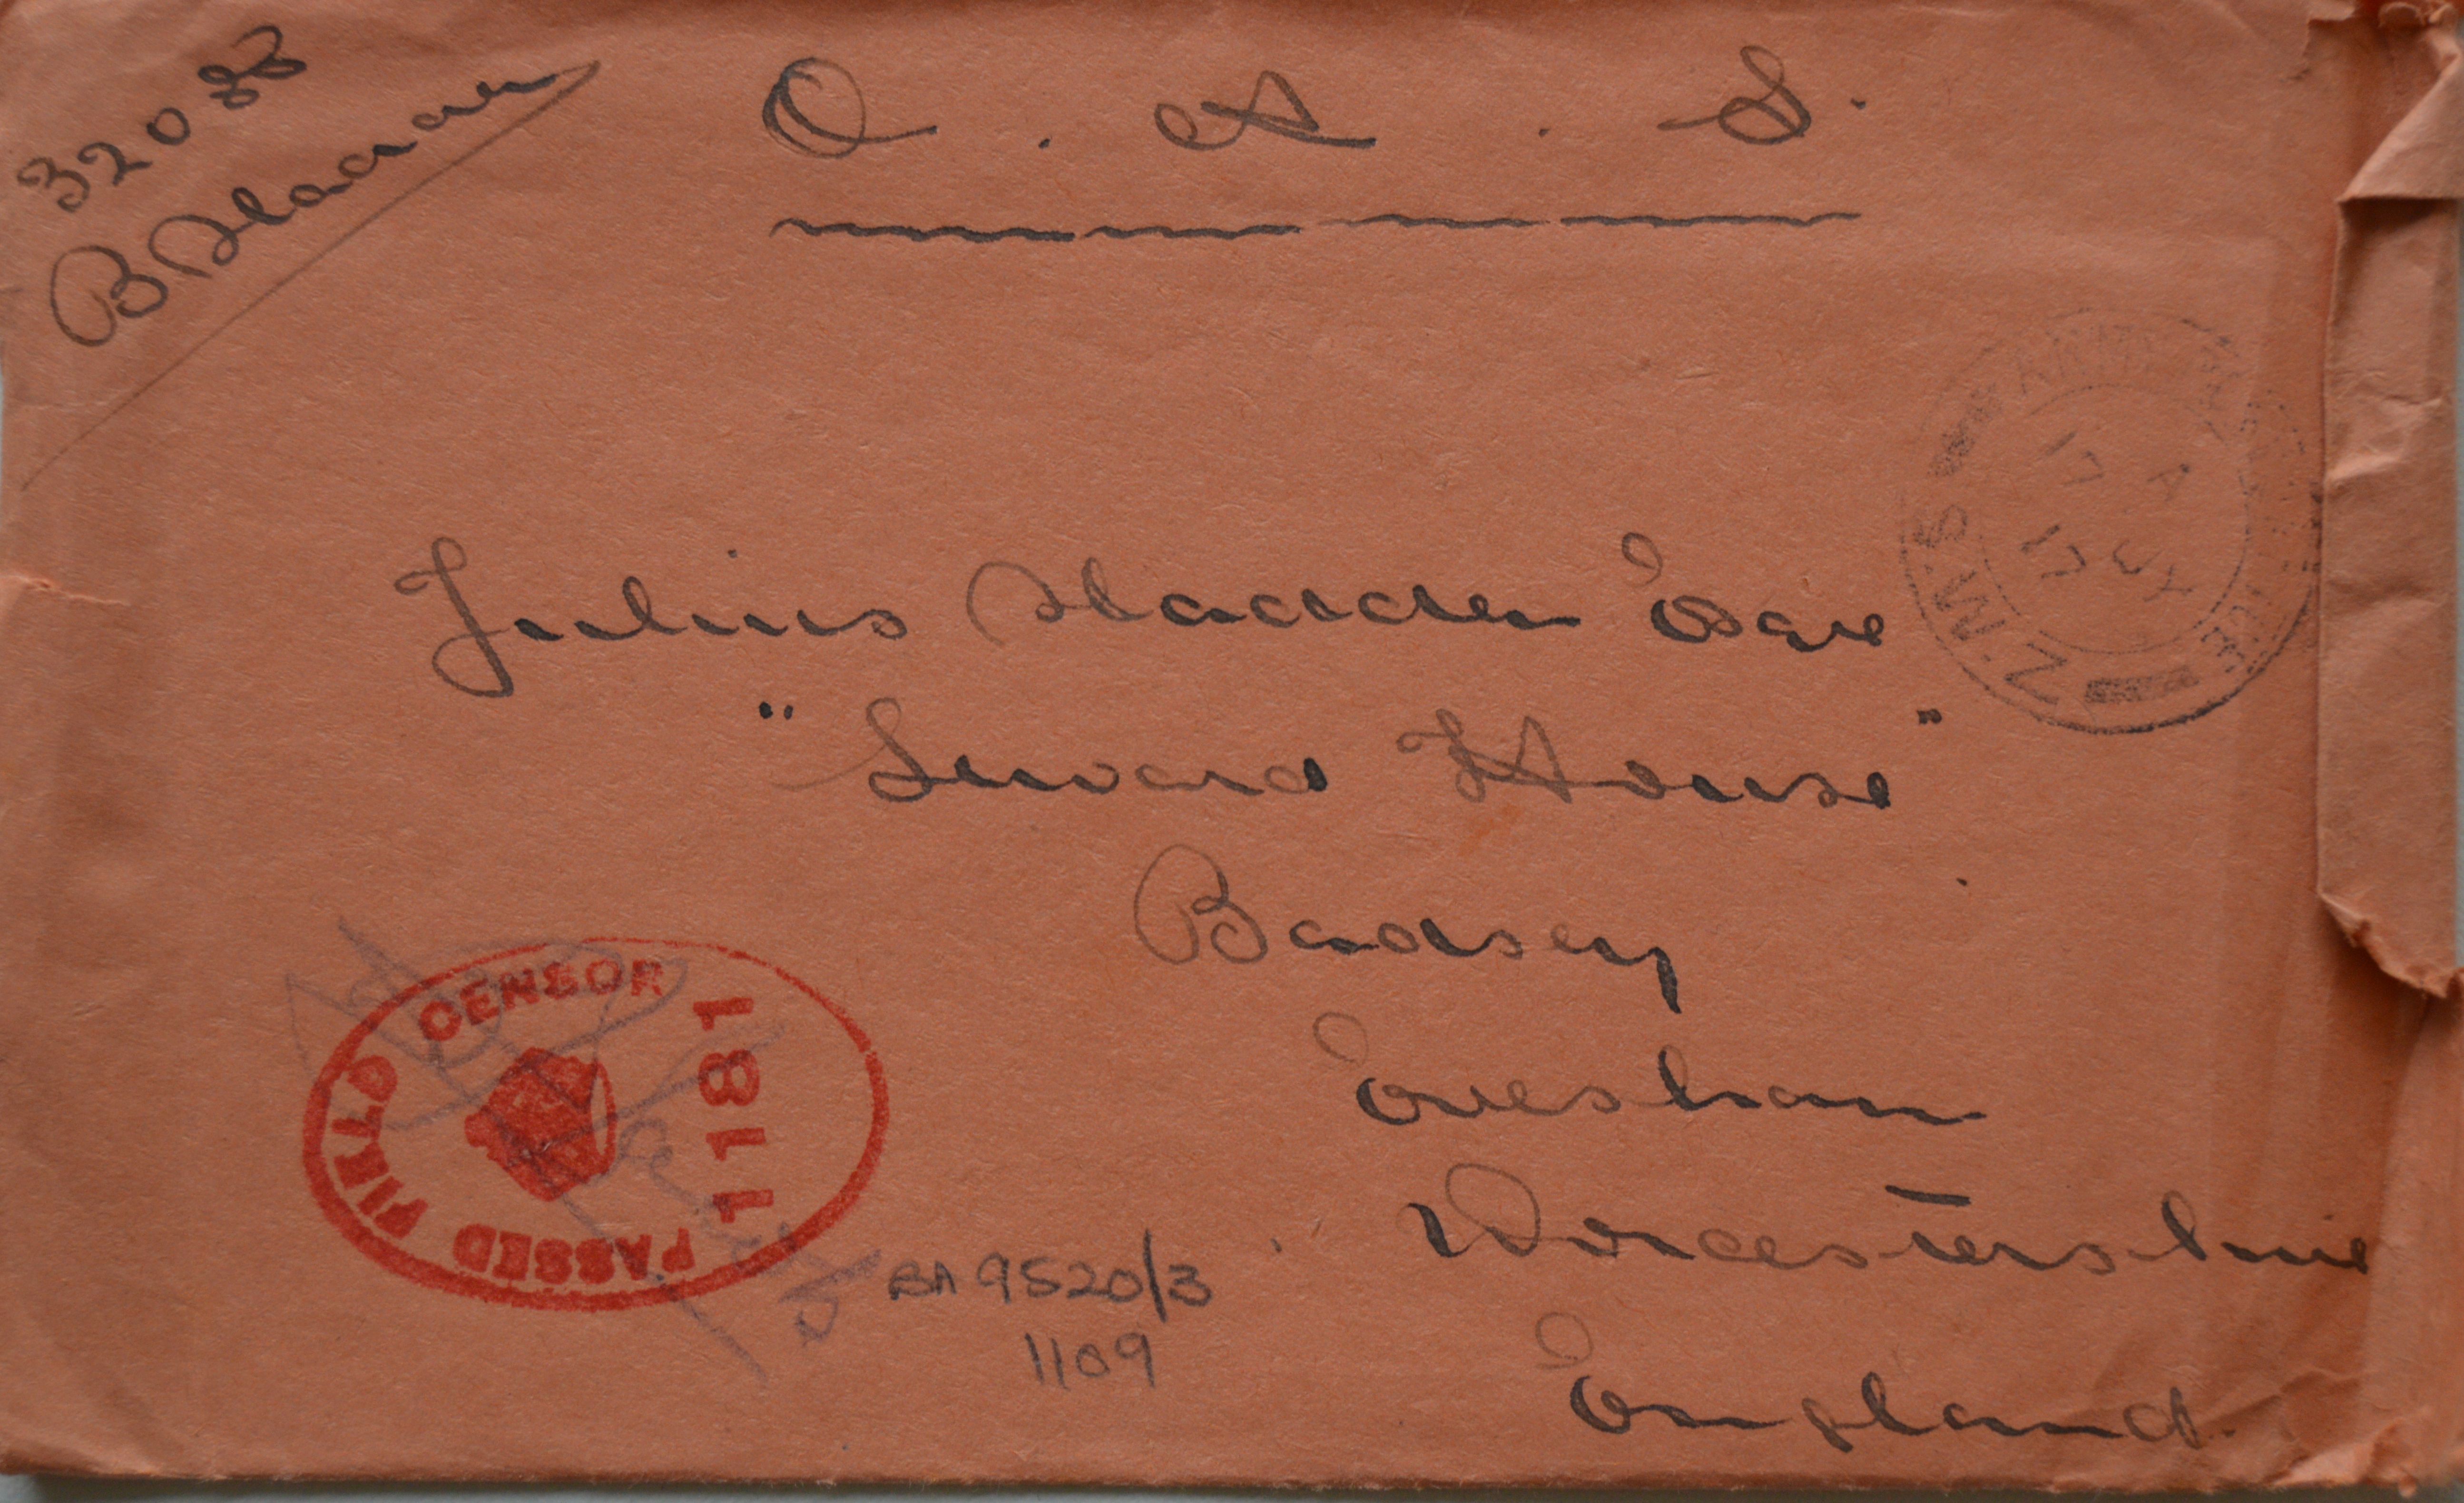 32083
B Sladden
O . A . S .
Julius Sladden Esqre
"Seward House"
Badsey
Evesham
Worcestershire
England.
ARMY
Z.M.5
A
17 JY
17
PASSED FIELD CENSOR
1181
BA 9520/3
1109